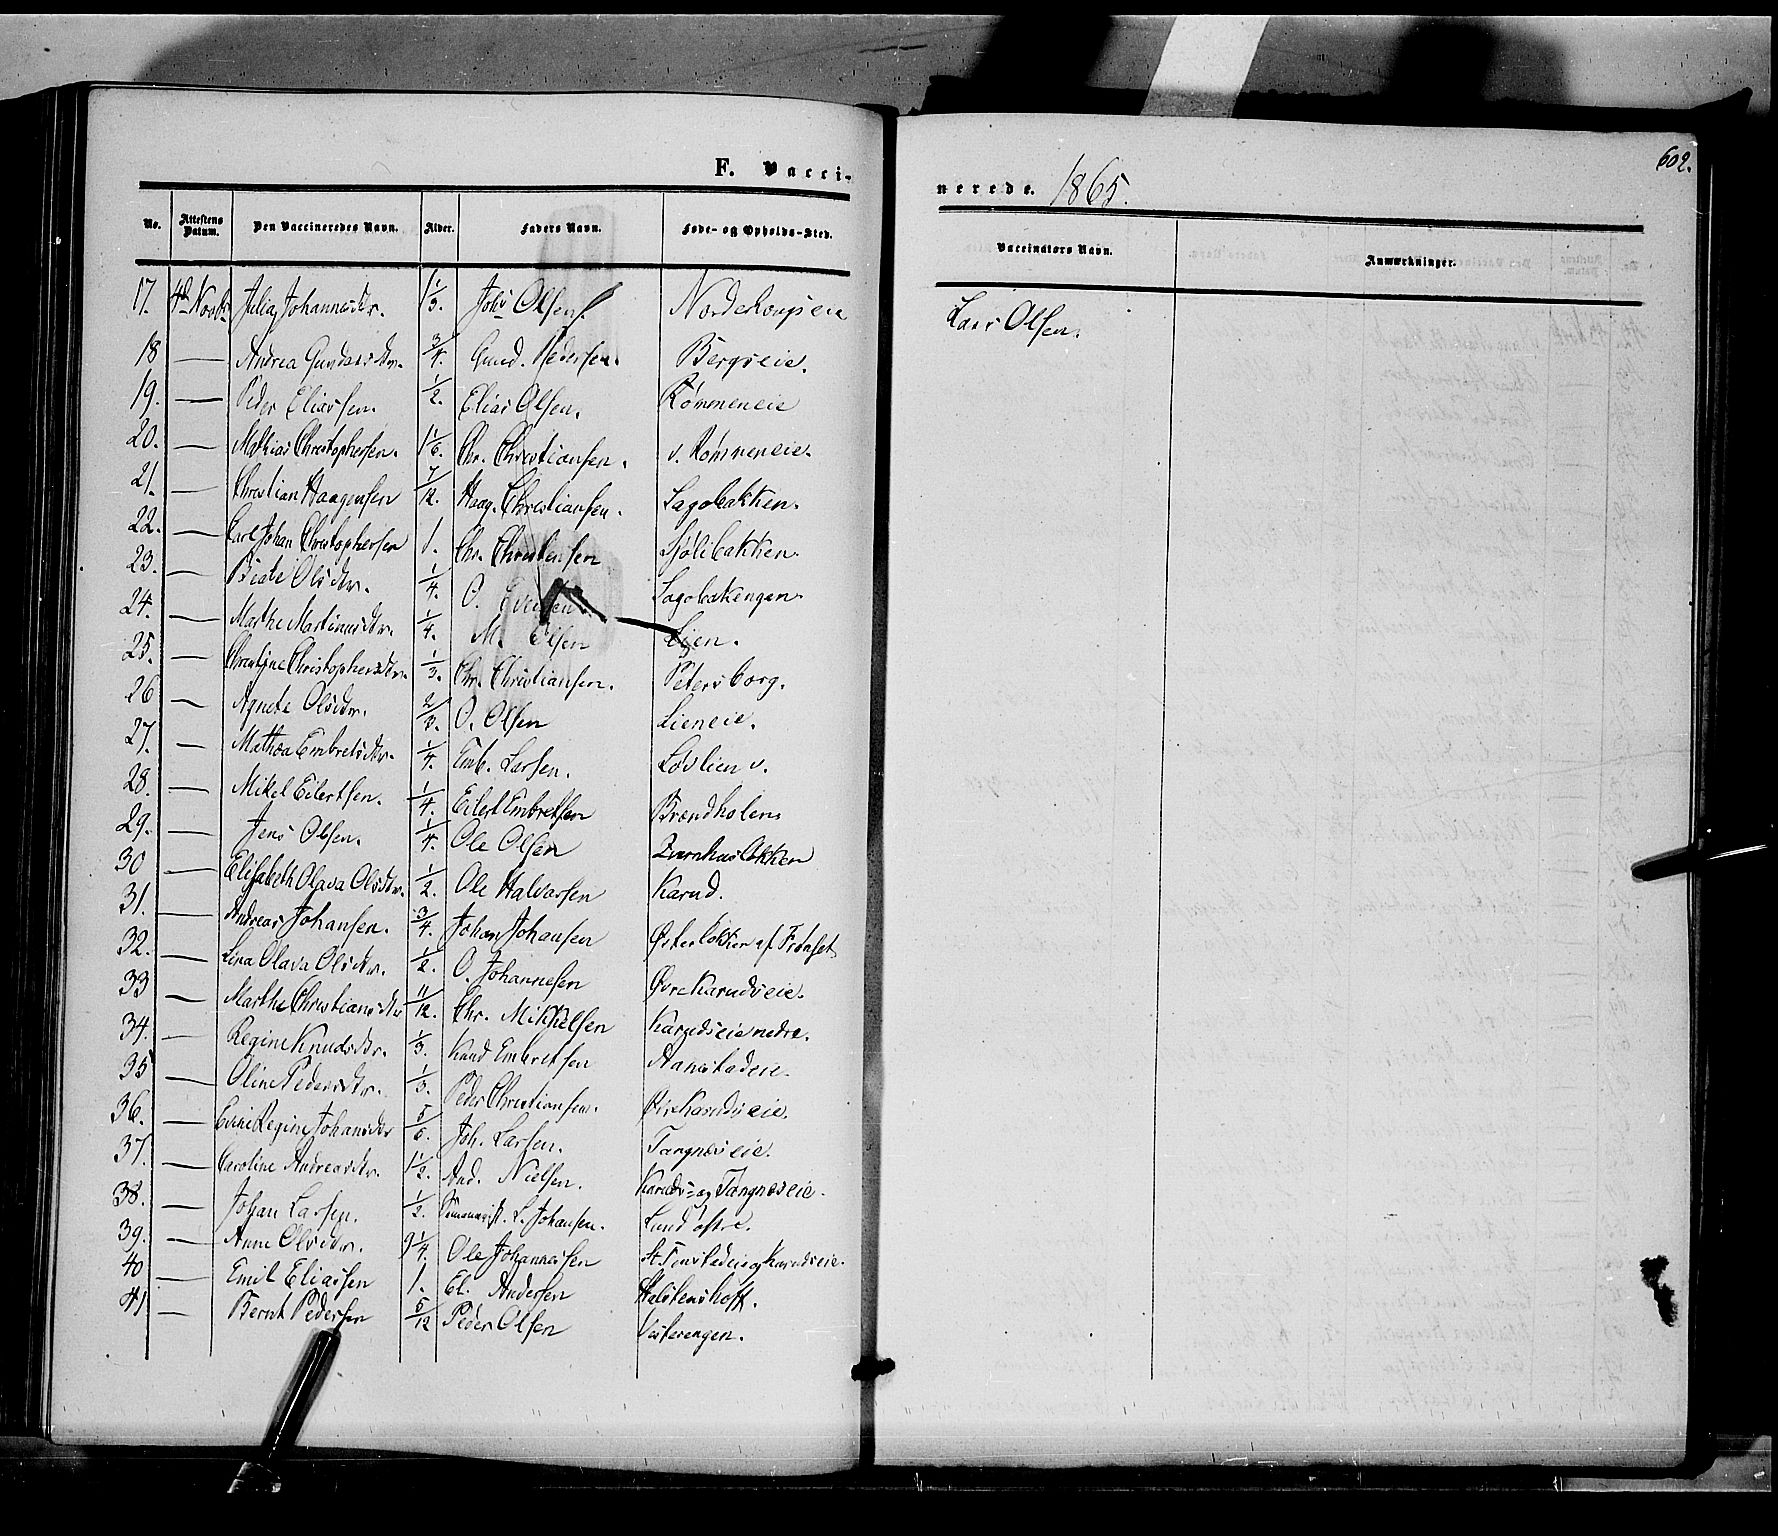 F. Vacci-
No. Attestens Datum. Den Vaccineredes Navn. Alder. Faders Navn. Føde- og Opholds-Sted.
17. 4d Novbr Julia Johannesdtr. 1 1/3. Johs Olsen. Nordehougseie
18 — Andrea Gundersdtr. 3/4. Gund. Pedersen. Bergseie.
19. — Peder Eliassen. 1/2. Elias Olsen. Rømmeneie
20. — Mathias Christophersen. 1 1/6. Chr. Christiansen. v. Rømmeneie.
21. — Christian Haagensen 7/12. Haag. Christiansen. Sagbakken.
22. — Carl Johan Christophersen 1. Chr. Christensen Sjølibakken.
23. — Beate Olsdtr. 1/4. O. Evensen. Sagbakengen.
24. — Marthe Martinusdtr. 1/4. M. Olsen Lien.
25. — Christine Christophersdtr. 1/3. Chr. Christiansen. Petersborg.
26 — Agnete Olsdtr. 2/3. O. Olsen Lieneie.
27. — Mathea Embretsdtr. 1/4. Emb. Larsen. Løvlien v.
28. — Mikel Eilertsen. 1/4. Eilert Embretsen Brændholen
29. — Jens Olsen. 1/4. Ole Olsen Qvernhusløkken
30 — Elisabeth Olava Olsdtr. 1/2. Ole Halvorsen Karud.
31. — Andreas Johansen. 3/4. Johan Johansen Østerløkken af Frøshet
32. — Lina Olava Olsdtr. 1/2. O. Johannesen Øvre Karudseie.
33 — Marthe Christiansdtr 11/12. Chr. Mikkelsen Karudseie nedre.
34. — Regine Knudsdtr. 1/3. Knud Embretsen Aanstadeie.
35 — Oline Pedersdtr. 1/3. Peder Christiansen. Øvr Karudseie.
36. — Evine Regine Johansdtr 5/6. Joh. Larsen. Tangneseie.
37. — Caroline Andreasdtr. 1 1/2. And. Nielsen. Karuds- og Tangneseie.
38. — Johan Larsen. 1/2. L. Johansen. Lund østre.
39. — Anne Olsdtr. 9 1/4. Ole Johannessen Karudseie.
40 — Emil Eliassen 1. El. Andersen Halstenshoff.
41 — Bernt Pedersen 5/12 Peder Olsen Vesterengen.
602.
nerede. 1865.
Vaccinators Navn. Anmærkninger.
Lars Olsen.